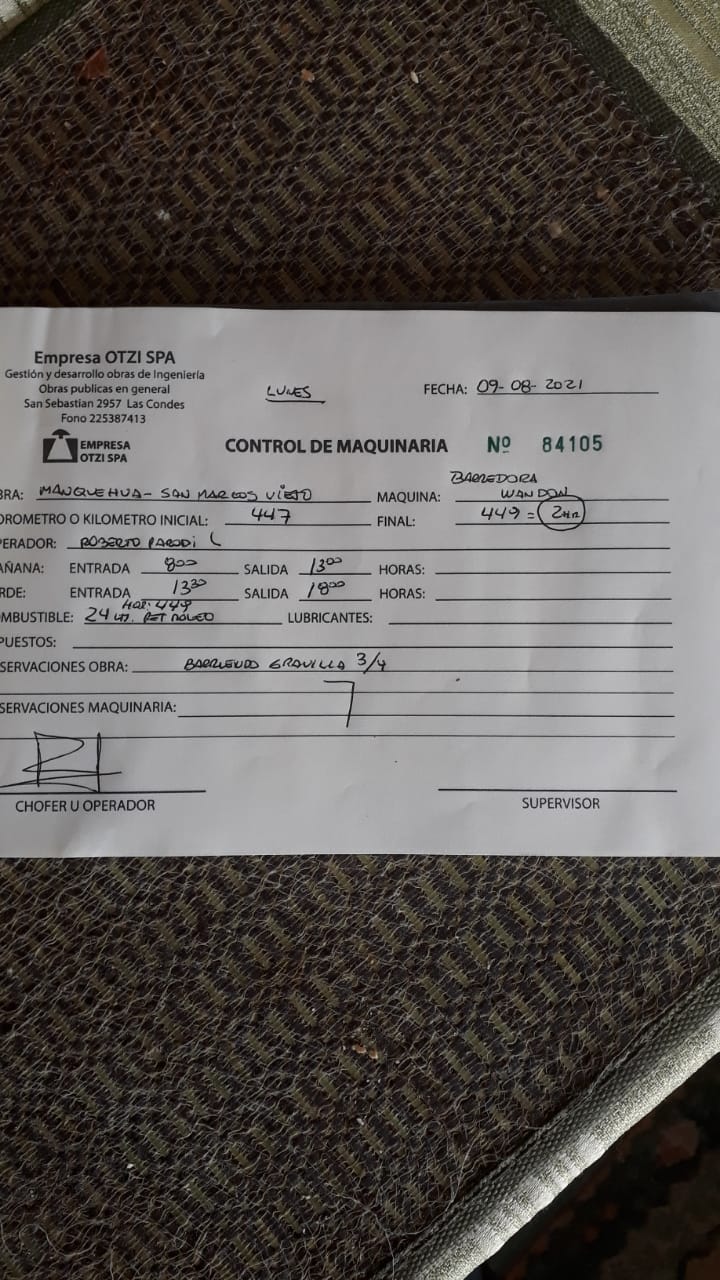 Empresa OTZI SPA
Gestión y desarrollo obras de Ingeniería
Obras publicas en general
San Sebastian 2957 Las Condes
Fono 225387413
EMPRESA
OTZI SPA
LUNES
FECHA: 09-08-2021
CONTROL DE MAQUINARIA Nº 84105
BRA: MANQUEHUA - SAN MARCOS VIEJO
MAQUINA: BARREDORA
WANDON
OROMETRO O KILOMETRO INICIAL: 447 FINAL: 449 = 2HR
PERADOR: ROBERTO PARODI L
AÑANA: ENTRADA 800 SALIDA 1300 HORAS:
RDE: ENTRADA 1330 SALIDA 1800 HORAS:
HOR: 449
OMBUSTIBLE: 24 LTS. PETROLEO LUBRICANTES:
PUESTOS:
SERVACIONES OBRA: BARRIENDO GRAVILLA 3/4
SERVACIONES MAQUINARIA:
CHOFER U OPERADOR SUPERVISOR